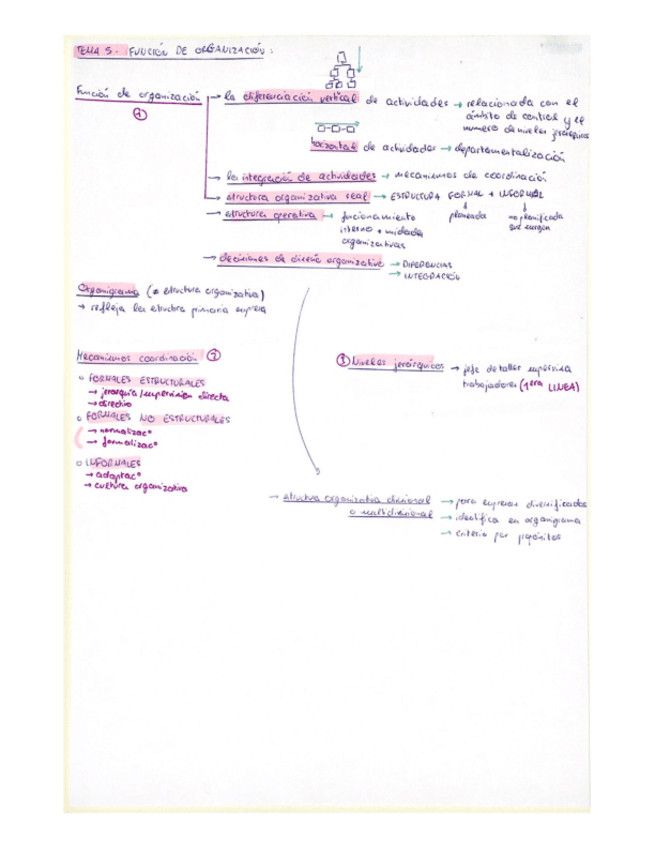 TEMA 5. FUNCIÓN DE ORGANIZACIÓN:
Función de organización → la diferenciación vertical de actividades → relacionada con el
ámbito de control y el
número de niveles jerárquicos
①
horizontal de actividades → departamentalización
→ la integración de actividades → mecanismos de coordinación
→ structura organizativa real → ESTRUCTURA FORMAL + INFORMAL
planeada
no planificada
que surgen
→ estructura operativa → funcionamiento
interno + unidades
organizativas
→ decisiones de diseño organizativo → DIFERENCIAS
→ INTEGRACIÓN
Organigrama (≠ estructura organizativa)
→ refleja la estructura primaria empresa
Mecanismos coordinación ②
o FORMALES ESTRUCTURALES
→ jerarquía/supervisión directa
→ directivo
o FORMALES NO ESTRUCTURALES
→ normalizac°
→ formalizac°
o INFORMALES
→ adaptac°
→ cultura organizativa
③ Niveles jerárquicos → jefe de taller supervisa
trabajadores (1era LINEA)
→ structura organizativa divisional → para empresas diversificadas
o multidivisional → identifica en organigrama
→ criterio por propósitos